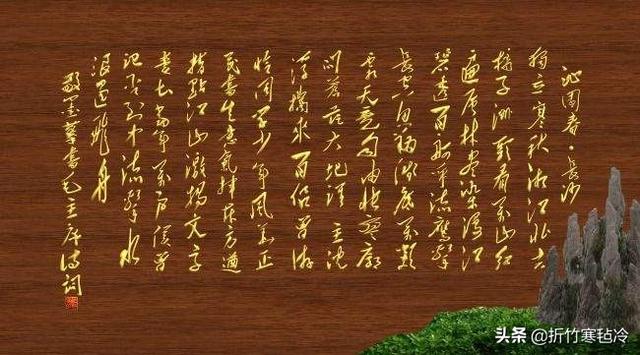 沁园春·长沙
独立寒秋湘江北去
橘子洲头看万山红
遍层林尽染漫江
碧透百舸争流鹰击
长空鱼翔浅底万类
霜天竞自由怅寥廓
问苍茫大地谁主沉
浮携来百侣曾游
恰同学少年风华正
茂书生意气挥斥方遒
指点江山激扬文字
粪土当年万户侯曾
记否到中流击水
浪遏飞舟
书毛主席诗词
头条 @折竹寒毡冷